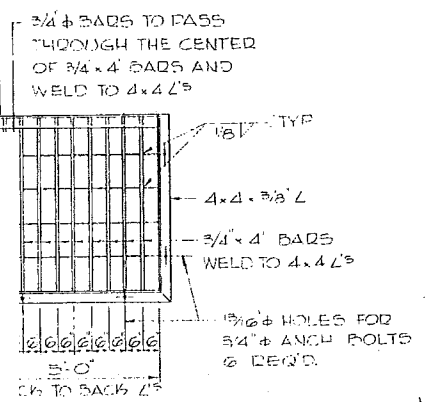 3/4" ɸ BARS TO PASS
THROUGH THE CENTER
OF 3/4 x 4" BARS AND
WELD TO 4x4 L'S
1/8 TYP
4 x 4 x 3/8" L
3/4" x 4" BARS
WELD TO 4x4 L'S
13/16" ɸ HOLES FOR
3/4" ɸ ANCH BOLTS
6 REQ'D.
6" 6" 6" 6" 6" 6" 6" 6"
3'-0"
CK TO BACK L'S